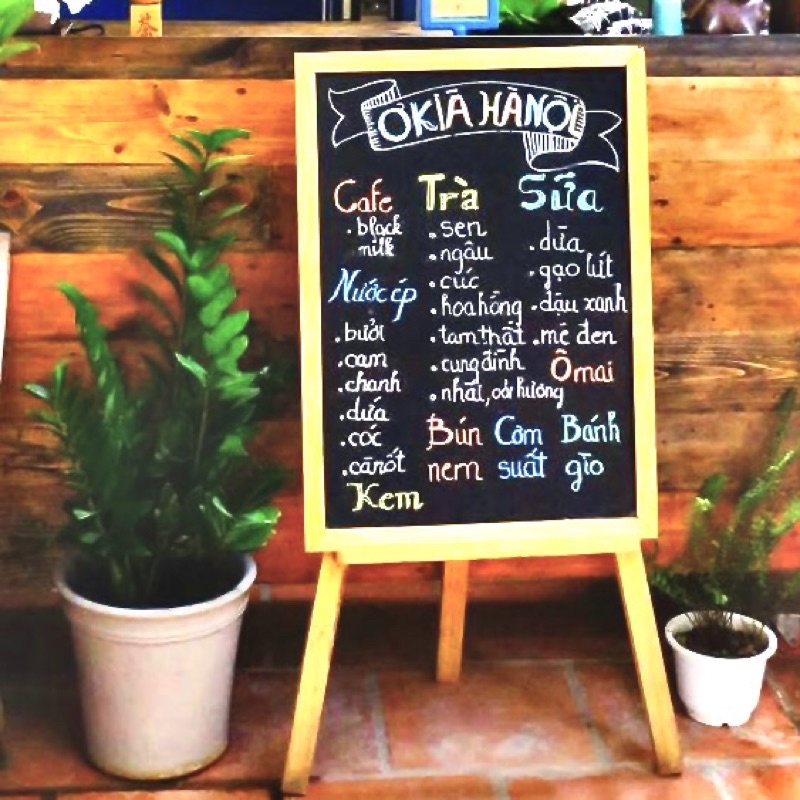 ƠKIÀ HÀNỘI
Cafe
. black
milk
Nước ép
. bưởi
. cam
. chanh
. dứa
. cóc
. cà rốt
Kem
Trà
. sen
. ngâu
. cúc
. hoa hồng
. tam thất
. cung đình
. nhài, oải hương
Sữa
. dừa
. gạo lứt
. đậu xanh
. mè đen
Ô mai
Bún
nem
Cơm
suất
Bánh
giò